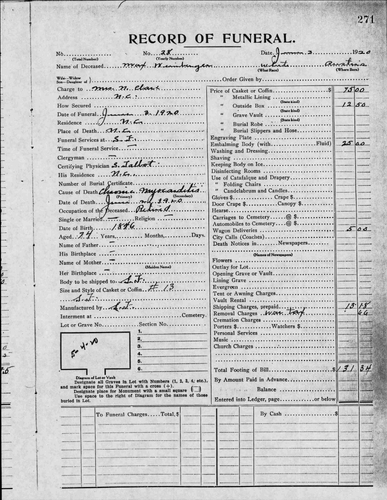 271
RECORD OF FUNERAL.
No. No. 28 Date June 2 1920
(Total Number) (Yearly Number)
Name of Deceased Max White Austria
(What Race) (Where Born)
Wife—Widow
Son—Daughter of Order Given by
Charge to Mrs. N. Clark
Address N.C.
How Secured
Date of Funeral June 2 1920
Residence N.C.
Place of Death N.C.
Funeral Services at S.F.
Time of Funeral Service
Clergyman
Certifying Physician S. Talbot
His Residence N.C.
Number of Burial Certificate
Cause of Death Chronic myocarditis
(Primary) (Secondary)
Date of Death June 1920
Occupation of the Deceased Retired
Single or Married Religion
Date of Birth 1846
Aged 74 Years, Months, Days.
Name of Father
His Birthplace
Name of Mother
(Maiden Name)
Her Birthplace
Body to be shipped to S.F.
Size and Style of Casket or Coffin # 13
S.F.
Manufactured by S.F.
Interment at Cemetery.
Lot or Grave No. Section No.
1.
2.
3.
4.
5.
6.
Diagram of Lot or Vault
Designate all Graves in Lot with Numbers (1, 2, 3, 4; etc.),
and mark space for this Funeral with a cross (+).
Designate place for Monument with a small square
Use space to right of Diagram for the names of those
buried in Lot.
Price of Casket or Coffin $ 75 00
" Metallic Lining
(State kind)
" Outside Box 12 50
(State kind)
" Grave Vault
(State kind)
" Burial Robe
(State kind)
" Burial Slippers and Hose
Engraving Plate
Embalming Body (with Fluid) 25 00
Washing and Dressing
Shaving
Keeping Body on Ice
Disinfecting Rooms
Use of Catafalque and Drapery
" Folding Chairs
" Candelabrum and Candles
Gloves $ Crape $
Door Crape $ Candy $
Hearse
Carriages to Cemetery @ $
Automobiles to Cemetery @ $
Wagon Deliveries 5 00
City Calls (Coaches)
Death Notices in Newspapers
Flowers
Outlay for Lot
Opening Grave or Vault
Lining Grave
Evergreen
Tent or Awning Charges
Vault Rental
Shipping Charges, prepaid 13 18
Removal Charges war tax 66
Cremation Charges
Porters $ Watchers $
Personal Services
Music
Church Charges
Total Footing of Bill $ 131 34
By Amount Paid in Advance
Balance
Entered into Ledger, page or below.
To Funeral Charges Total, $ By Cash $